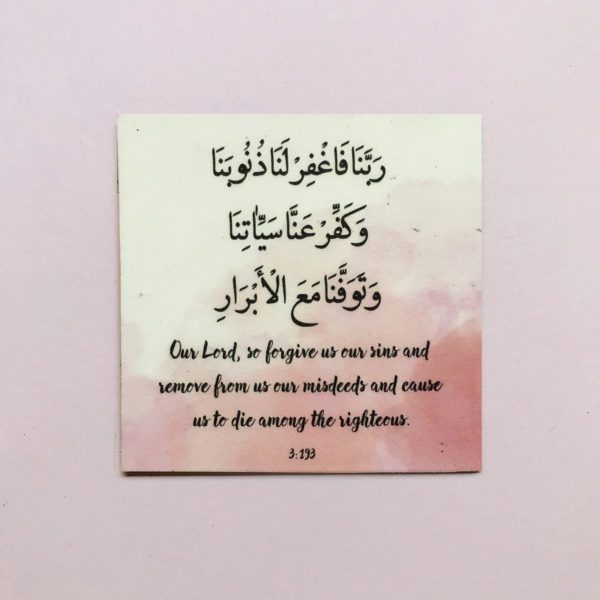 رَبَّنَا فَاغْفِرْ لَنَا ذُنُوبَنَا
وَكَفِّرْ عَنَّا سَيِّاٰتِنَا
وَتَوَفَّنَا مَعَ الْأَبْرَارِ
Our Lord, so forgive us our sins and
remove from us our misdeeds and cause
us to die among the righteous.
3:193